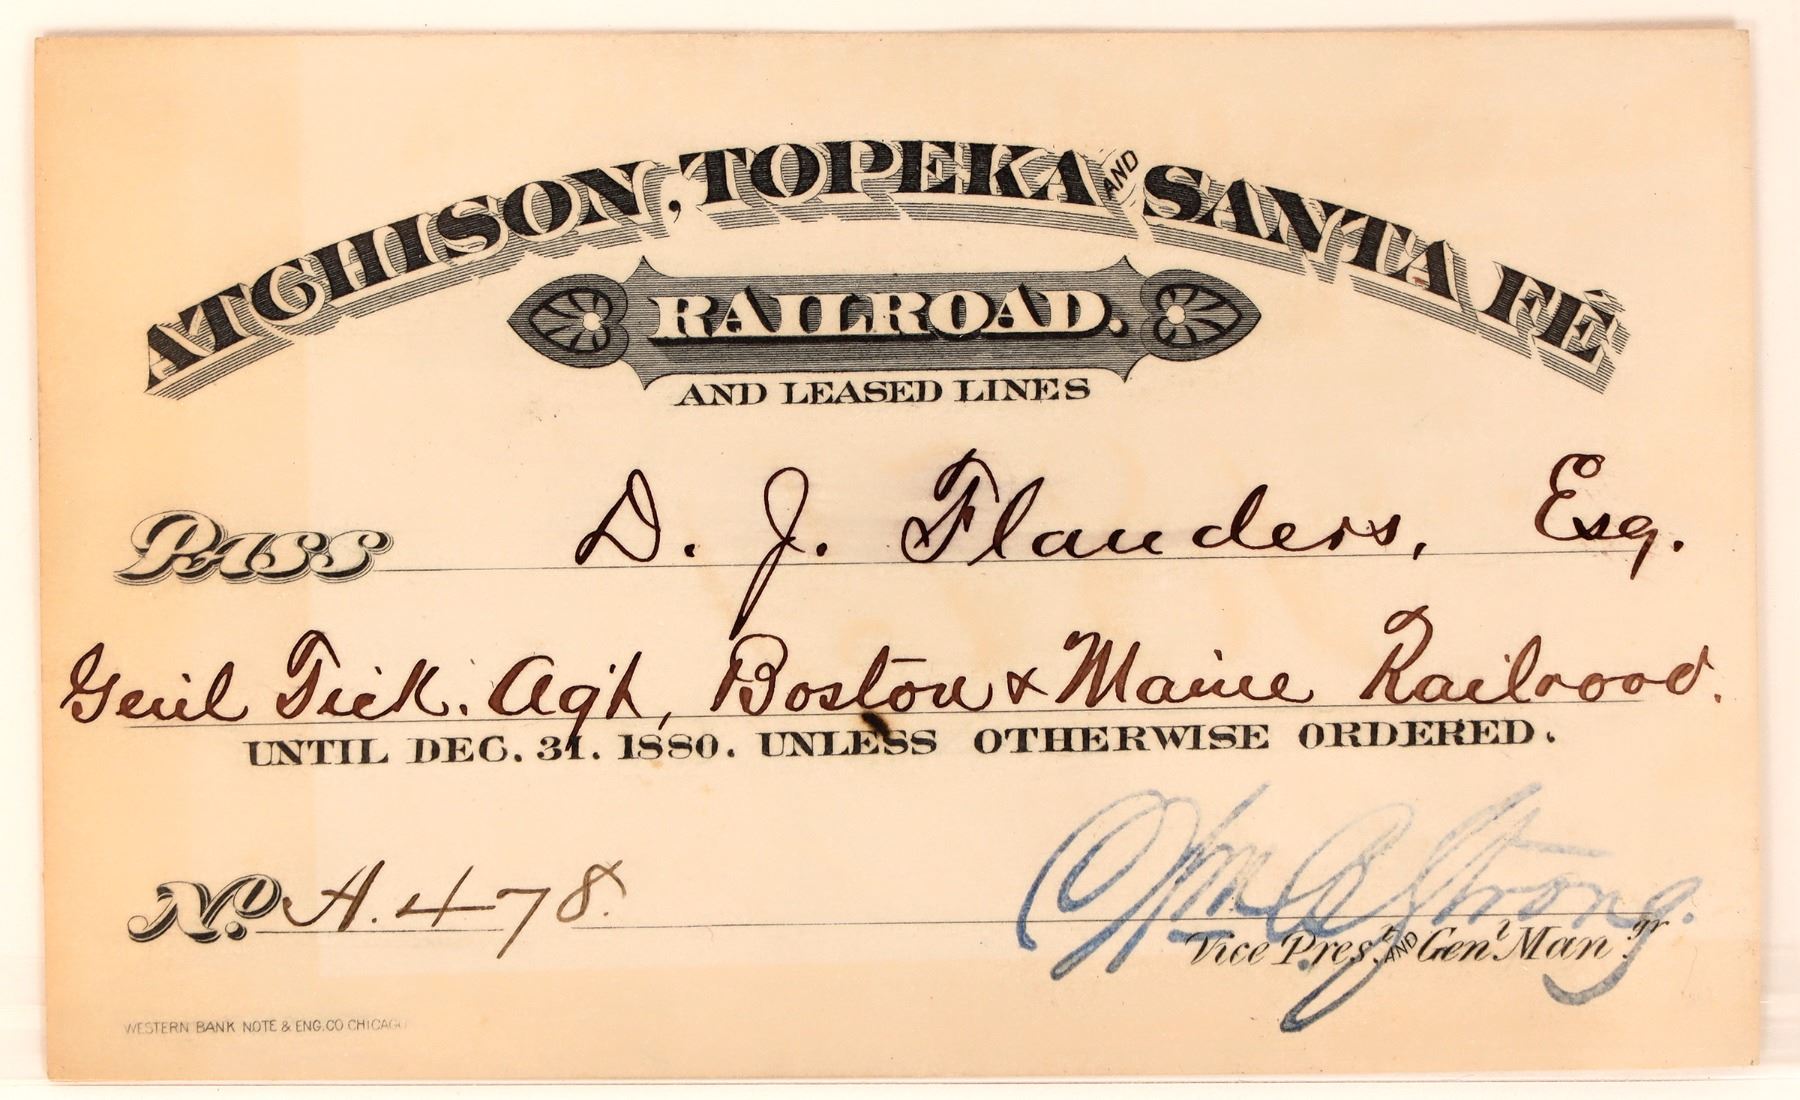 ATCHISON, TOPEKA AND SANTA FÉ
RAILROAD.
AND LEASED LINES
Pass D. J. Flanders, Esq.
Gen'l Tick. Ag't, Boston & Maine Railroad.
UNTIL DEC. 31. 1880. UNLESS OTHERWISE ORDERED.
No. A. 478.
Wm B Strong.
Vice Pres.t AND Gen.t Man.gr
WESTERN BANK NOTE & ENG. CO CHICAGO